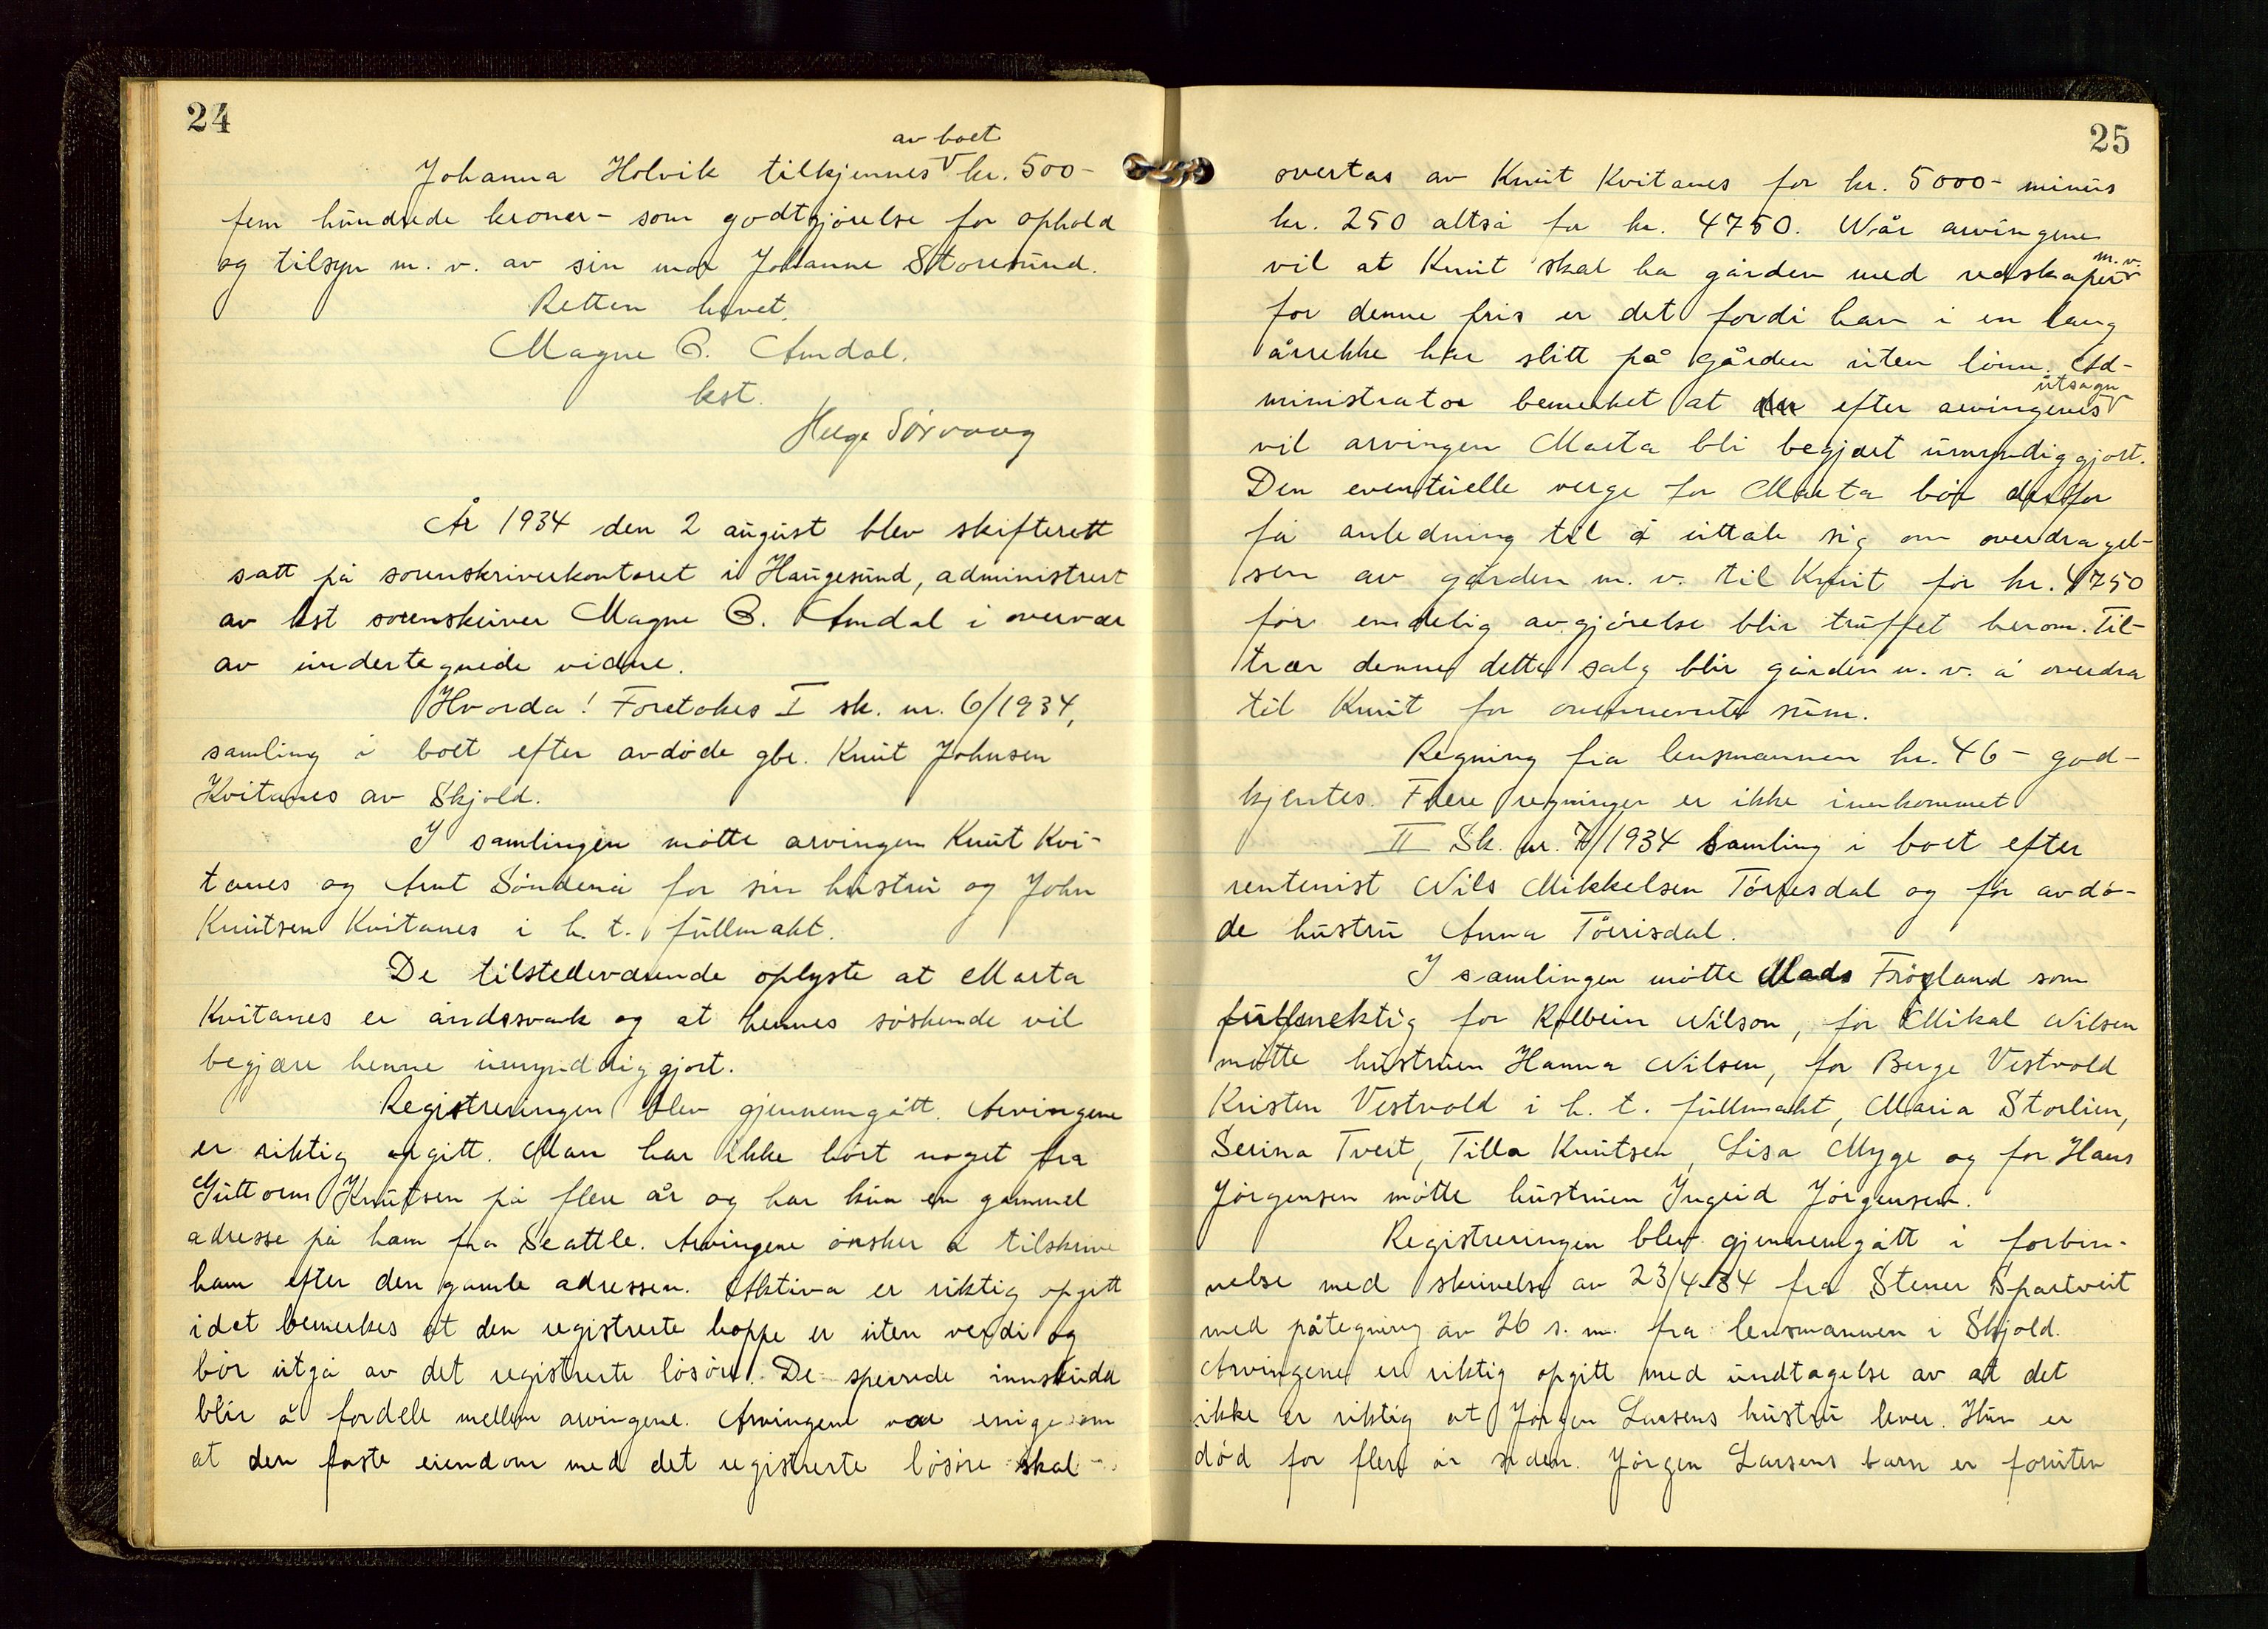 24
av boet
Johanna Holvik tilkjennes V kr. 500-
fem hundrede kroner- som godtgjørelse for ophold
og tilsyn m. v. av sin mor Johanne Storesund.
Retten hevet.
Magne B. Amdal.
kst.
Helge Sørvaag
År 1934 den 2 august blev skifterett
satt på sorenskriverkontoret i Haugesund, administrert
av kst sorenskriver Magne B. Amdal i overvær
av undertegnede vidne.
Hvorda! Foretokes I sk. nr. 6/1934,
samling i boet efter avdøde gbr. Knut Johnsen
Kvitanes av Skjold.
I samlingen møtte arvingen Knut Kvi-
tanes og Arnt Søndenå for sin hustru og John
Knutsen Kvitanes i h. t. fullmakt.
De tilstedeværende oplyste at Marta
Kvitanes er åndssvak og at hennes søskende vil
begjære henne umynddiggjort.
Registreringen blev gjennemgått. Arvingene
er riktig opgitt. Man har ikke hørt noget fra
Guttorm Knutsen på flere år og har kun en gammel
adresse på ham fra Seattle. Arvingene ønsker å tilskrive
ham efter den gamle adressen. Aktiva er riktig opgitt
idet bemerkes at den registrerte hoppe er uten verdi og
bør utgå av det registrerte løsøre. De sperrede innskudd
blir å fordele mellem arvingene. Arvingene var enige om
at den faste eiendom med det registrerte løsøre skal-
25
overtas av Knut Kvitanes for kr. 5000- minus
kr. 250 altså for kr. 4750. Når arvingene
m. v.
vil at Knut skal ha gården med redskaper V
for denne pris er det fordi han i en lang
årrekke har slitt på gården uten lønn. Ad-
utsagn
ministrator bemerket at efter arvingenes V
vil arvingen Marta bli begjært umyndiggjort.
Den eventuelle verge for Marta bør derfor
få anledning til å uttale sig om overdragel-
sen av gården m. v. til Knut for kr. 4750
før endelig avgjørelse blir truffet herom. Til-
trær denne dette salg blir gården m. v. å overdra
til Knut for ovennevnte sum.
Regning fra lensmannen kr. 46- god-
kjentes. Flere regninger er ikke innkommet
II Sk. nr. 7/1934 Samling i boet efter
rentenist Nils Mikkelsen Tørresdal og for avdø-
de hustru Anna Tørrisdal.
I samlingen møtte Mads Frøyland som
fullmektig for Kolbein Nilson, for Mikal Nilsen
møtte hustruen Hanna Nilsen, for Berge Vestvold
Kristen Vestvold i h. t. fullmakt, Maria Storlien,
Serina Tveit, Tilla Knutsen, Lisa Myge og for Hans
Jørgensen møtte hustruen Ingrid Jørgensen.
Registreringen blev gjennemgått i forbin-
nelse med skrivelse av 23/4-34 fra Stener Spartveit
med påtegning av 26 s. m. fra lensmannen i Skjold.
Arvingene er riktig opgitt med undtagelse av at det
ikke er riktig at Jørgen Larsens hustru lever. Hun er
død for flere år siden. Jørgen Larsens barn er foruten